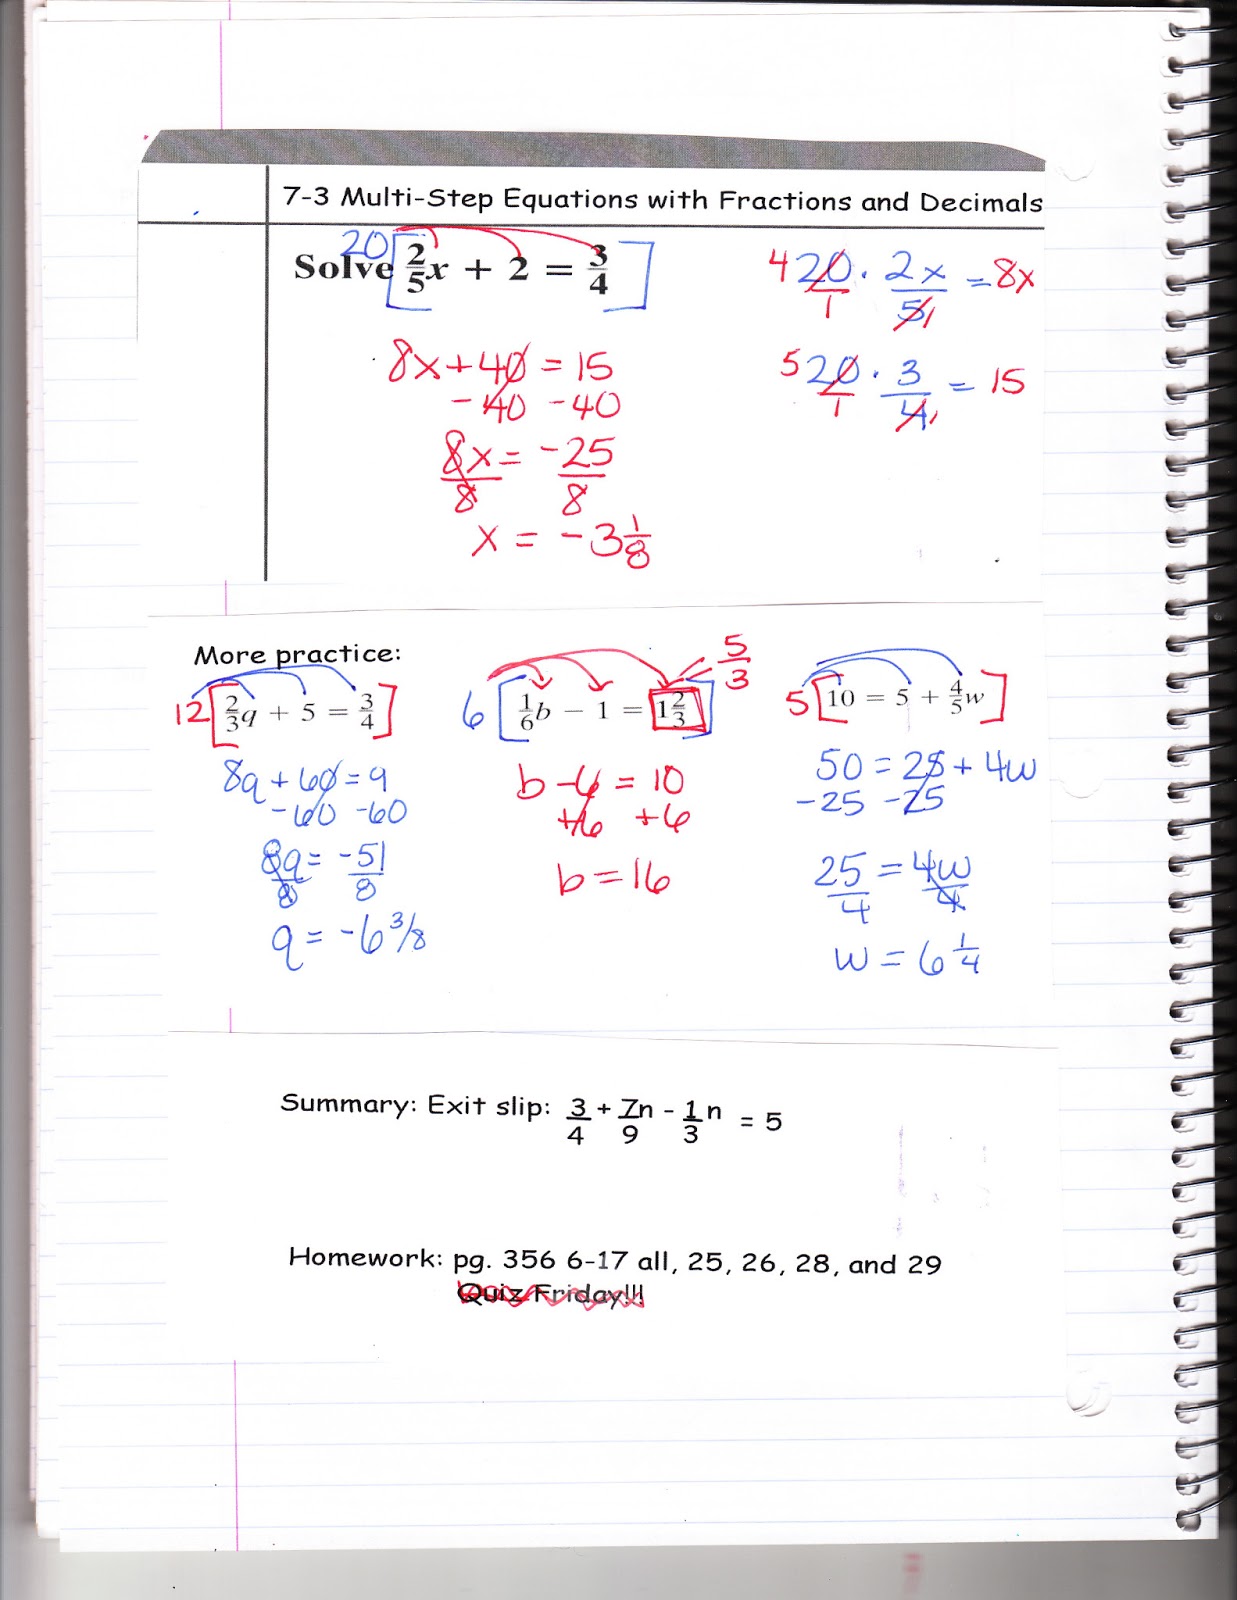 7-3 Multi-Step Equations with Fractions and Decimals
20
Solve [2/5 x + 2 = 3/4]
8x + 40 = 15
- 40 - 40
8x/8 = -25/8
x = -3 1/8
4 20/1 · 2x/5 1 = 8x
5 20/1 · 3/4 1 = 15
More practice:
12 [2/3 q + 5 = 3/4]
8q + 60 = 9
- 60 - 60
8q/8 = -51/8
q = -6 3/8
5/3
6 [1/6 b - 1 = 1 2/3]
b - 6 = 10
+6 +6
b = 16
5 [10 = 5 + 4/5 w]
50 = 25 + 4w
-25 -25
25/4 = 4w/4
w = 6 1/4
Summary: Exit slip: 3/4 + 7n/9 - 1/3 n = 5
Homework: pg. 356 6-17 all, 25, 26, 28, and 29
Quiz Friday!!!